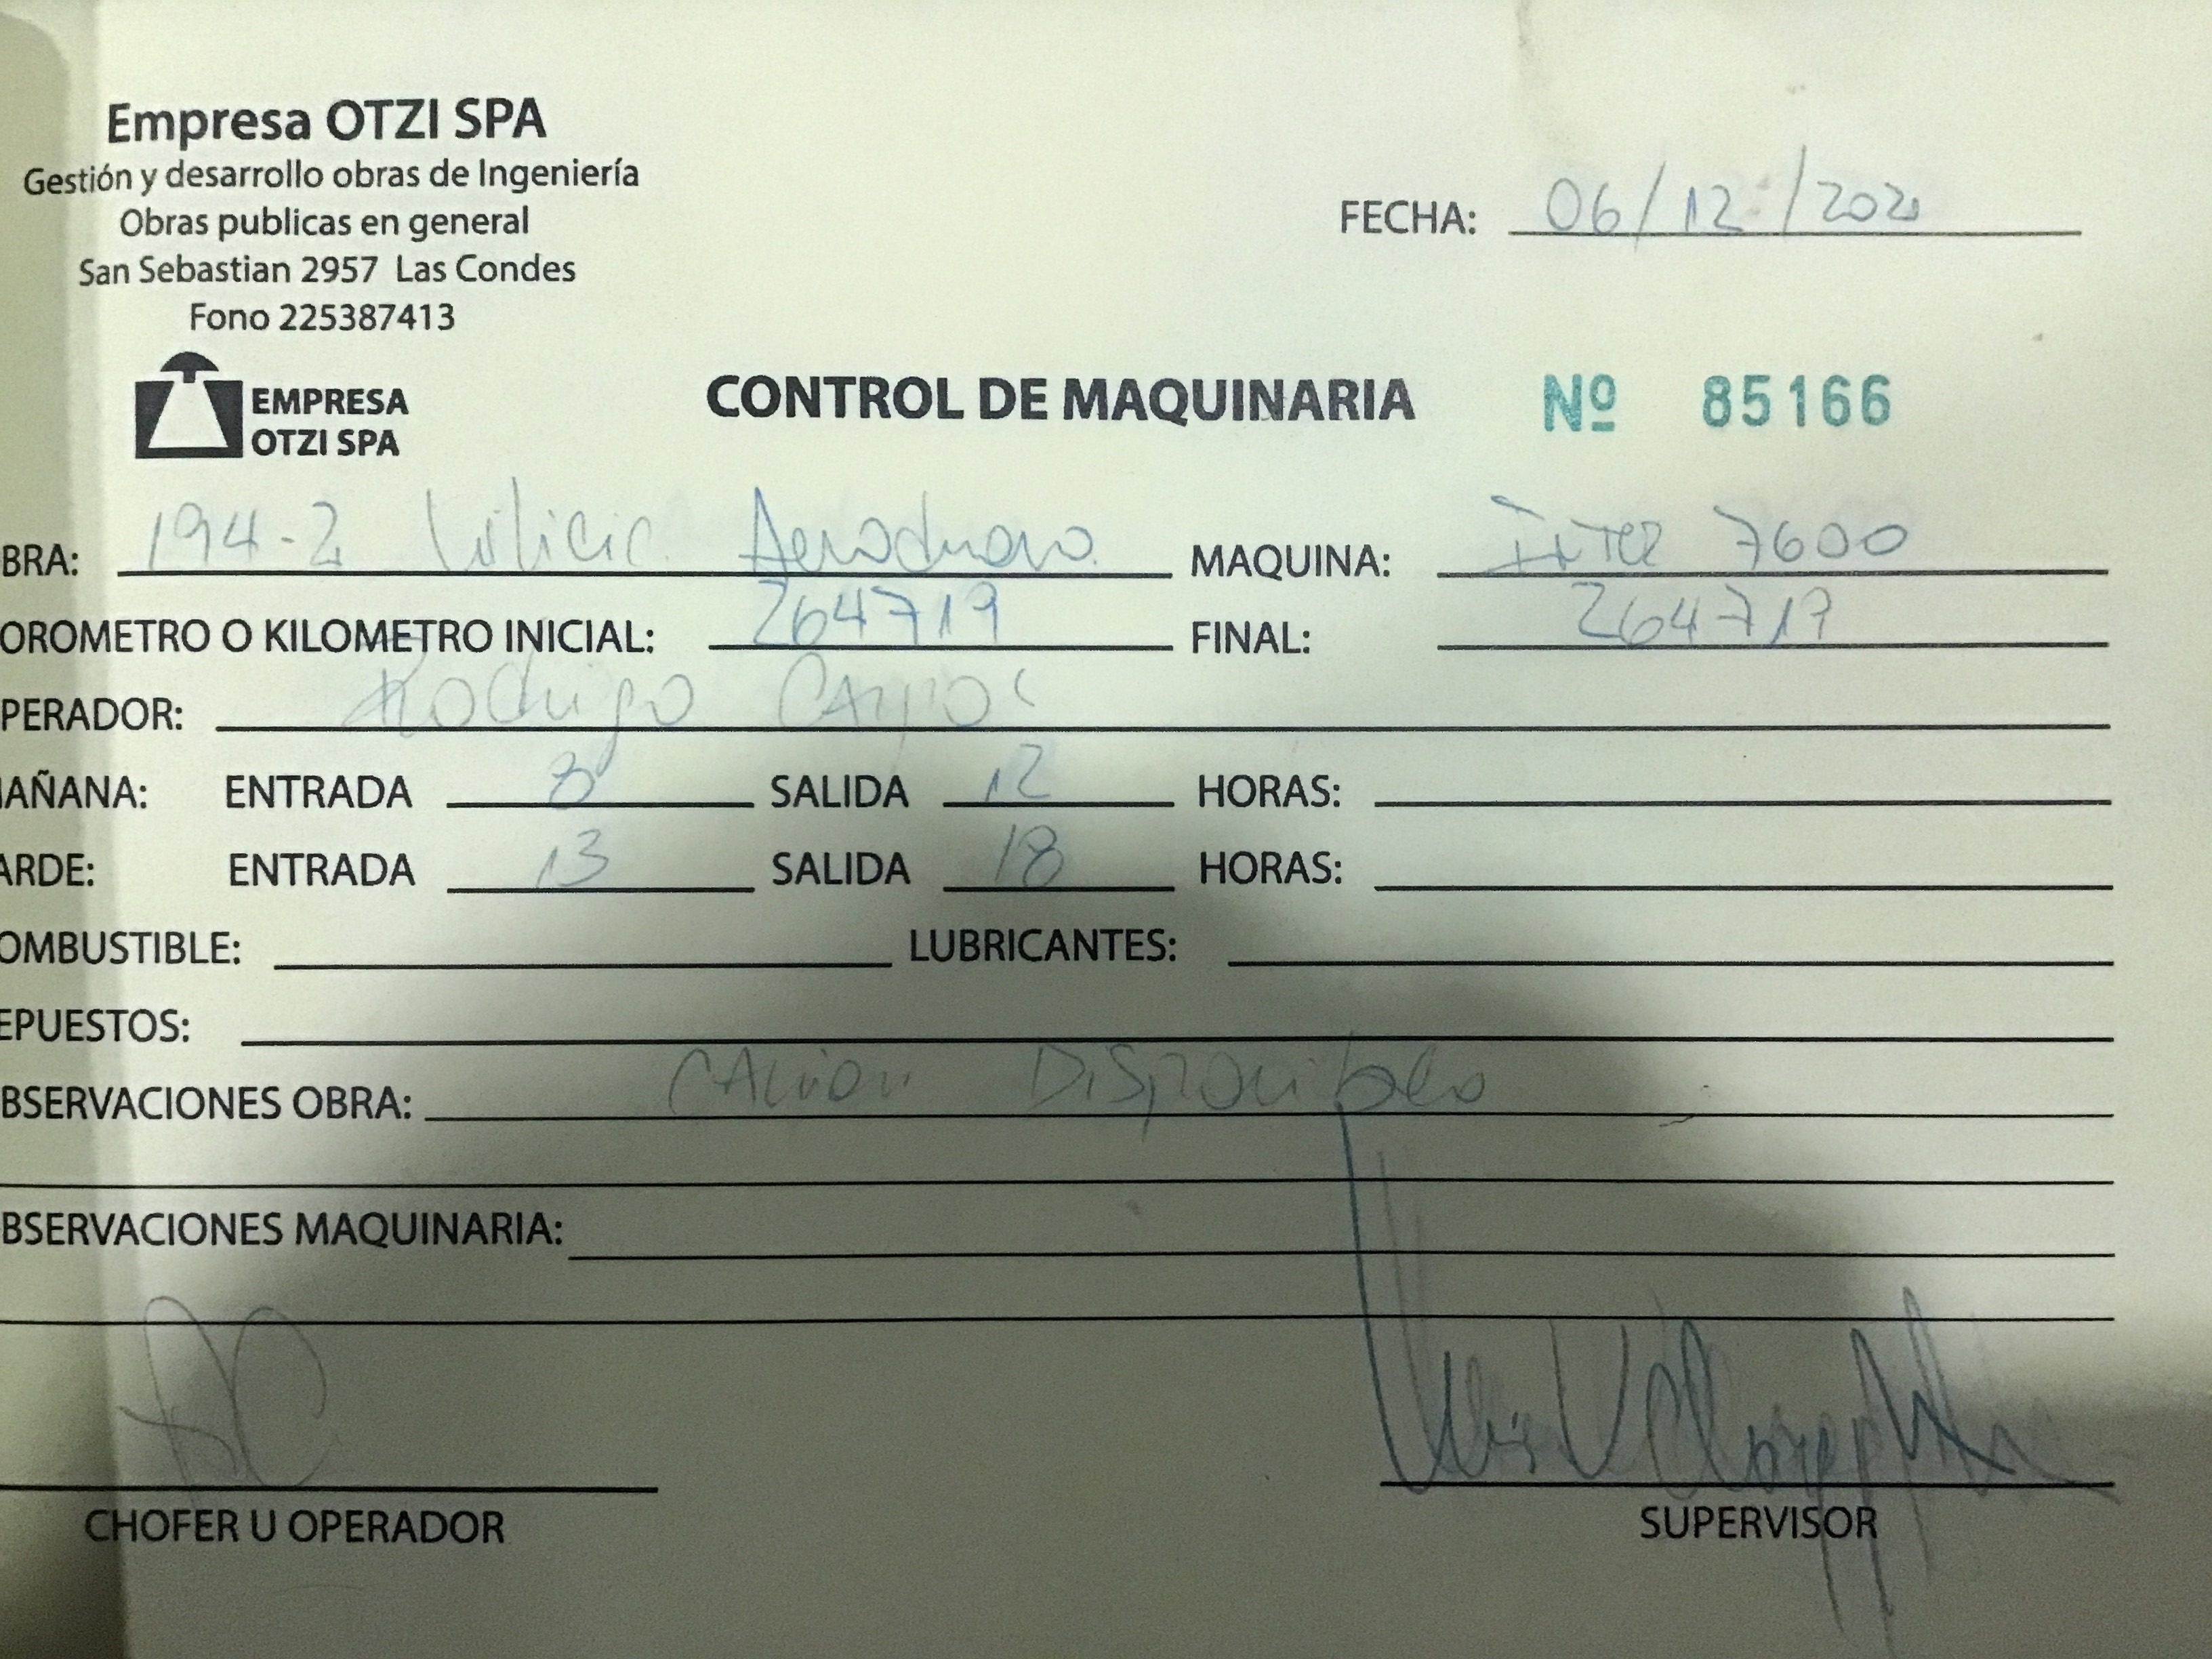 Empresa OTZI SPA
Gestión y desarrollo obras de Ingeniería
Obras publicas en general
San Sebastian 2957 Las Condes
Fono 225387413
FECHA: 06/12/202
EMPRESA
OTZI SPA
CONTROL DE MAQUINARIA Nº 85166
BRA: 194-2 Aerodromo. MAQUINA: Inter 7600
OROMETRO O KILOMETRO INICIAL: 264717 FINAL: 264717
PERADOR: Rodrigo Campos
AÑANA: ENTRADA 8 SALIDA 12 HORAS:
ARDE: ENTRADA 13 SALIDA 18 HORAS:
OMBUSTIBLE: LUBRICANTES:
EPUESTOS:
BSERVACIONES OBRA: CAMion DiSponible
BSERVACIONES MAQUINARIA:
CHOFER U OPERADOR SUPERVISOR